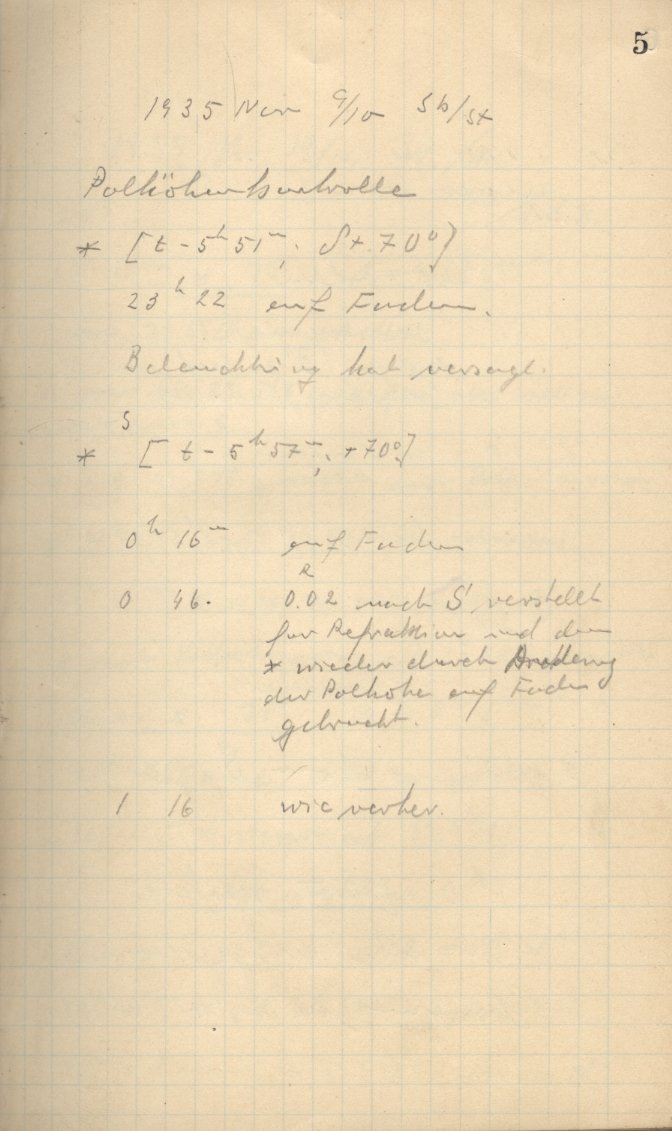 5
1935 Nov 9/10 Sb/St
Polhöhenkontrolle
* [t - 5h 51m; δ + 70°]
23h 22 auf Faden.
Beleuchtung hat versagt.
S
* [t - 5h 57m; + 70°]
0h 16m auf Faden
R
0 46. 0.02 nach S verstellt
für Refraktion und den
* wieder durch
der Polhöhe auf Faden
gebracht.
1 16 wie vorher.